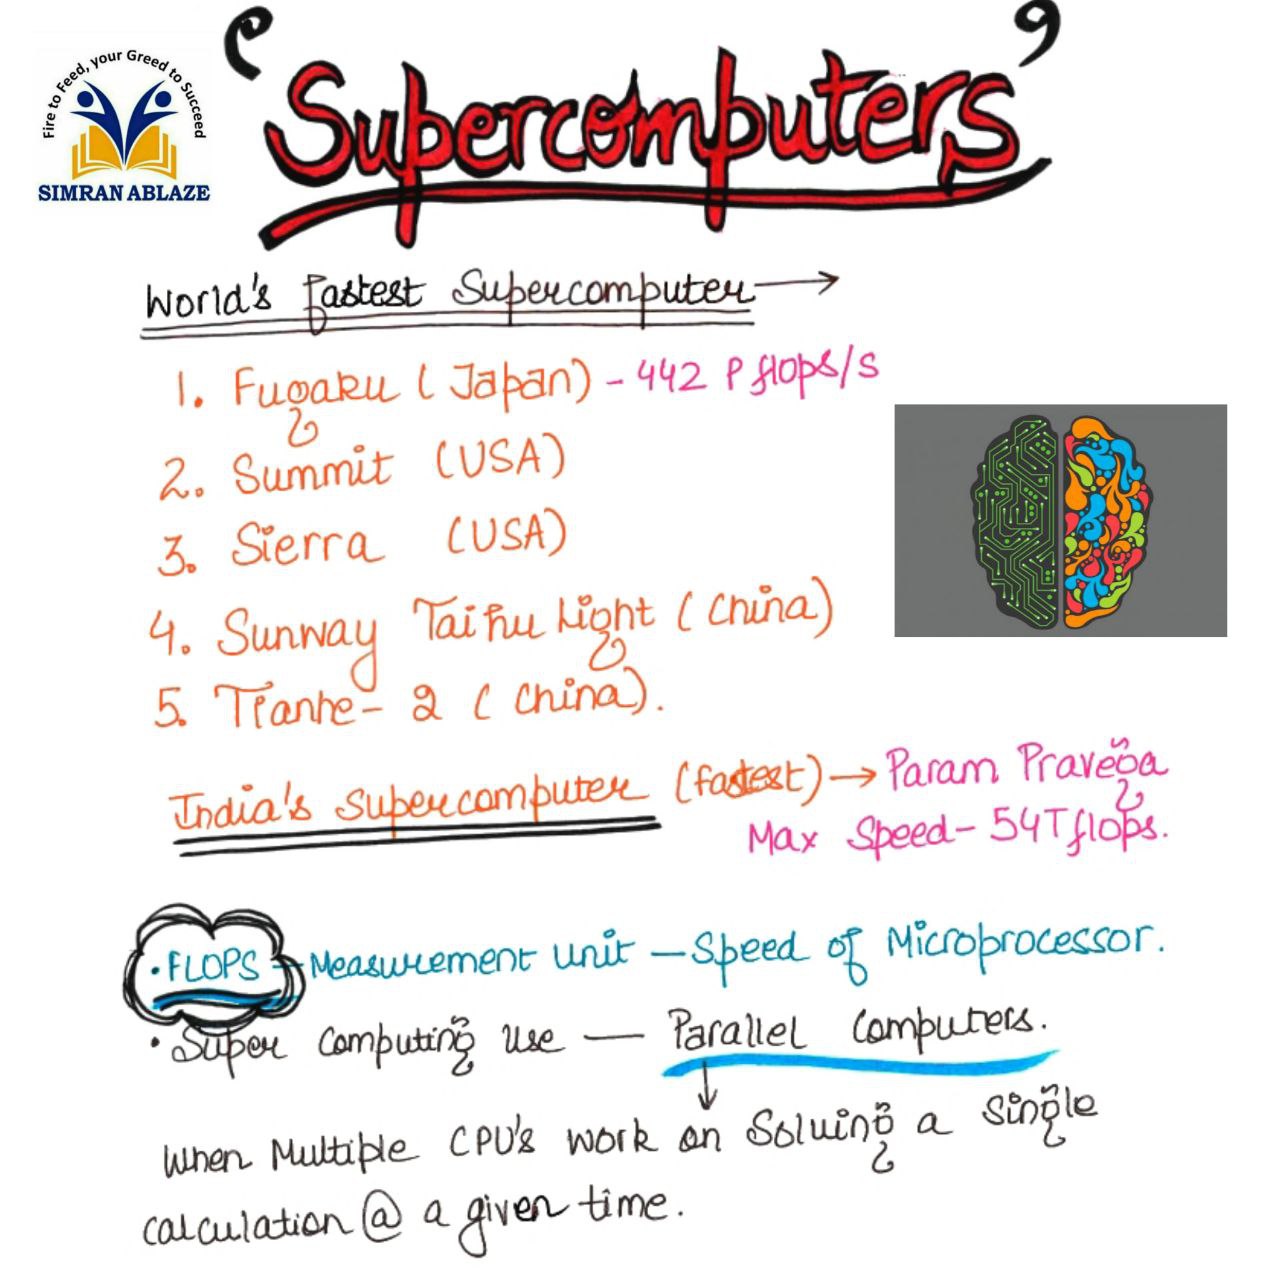 Fire to Feed, your Greed to Succeed
SIMRAN ABLAZE
"Supercomputers"
World's fastest Supercomputer →
1. Fugaku (Japan) - 442 P flops/s
2. Summit (USA)
3. Sierra (USA)
4. Sunway Taihu Light (China)
5. Tianhe - 2 (China).
India's Supercomputer (fastest) → Param Pravega
Max Speed - 54T flops.
• FLOPS - Measurement unit - Speed of Microprocessor.
• Super Computing Use — Parallel Computers.
↓
When Multiple CPU's work on Solving a Single
calculation @ a given time.